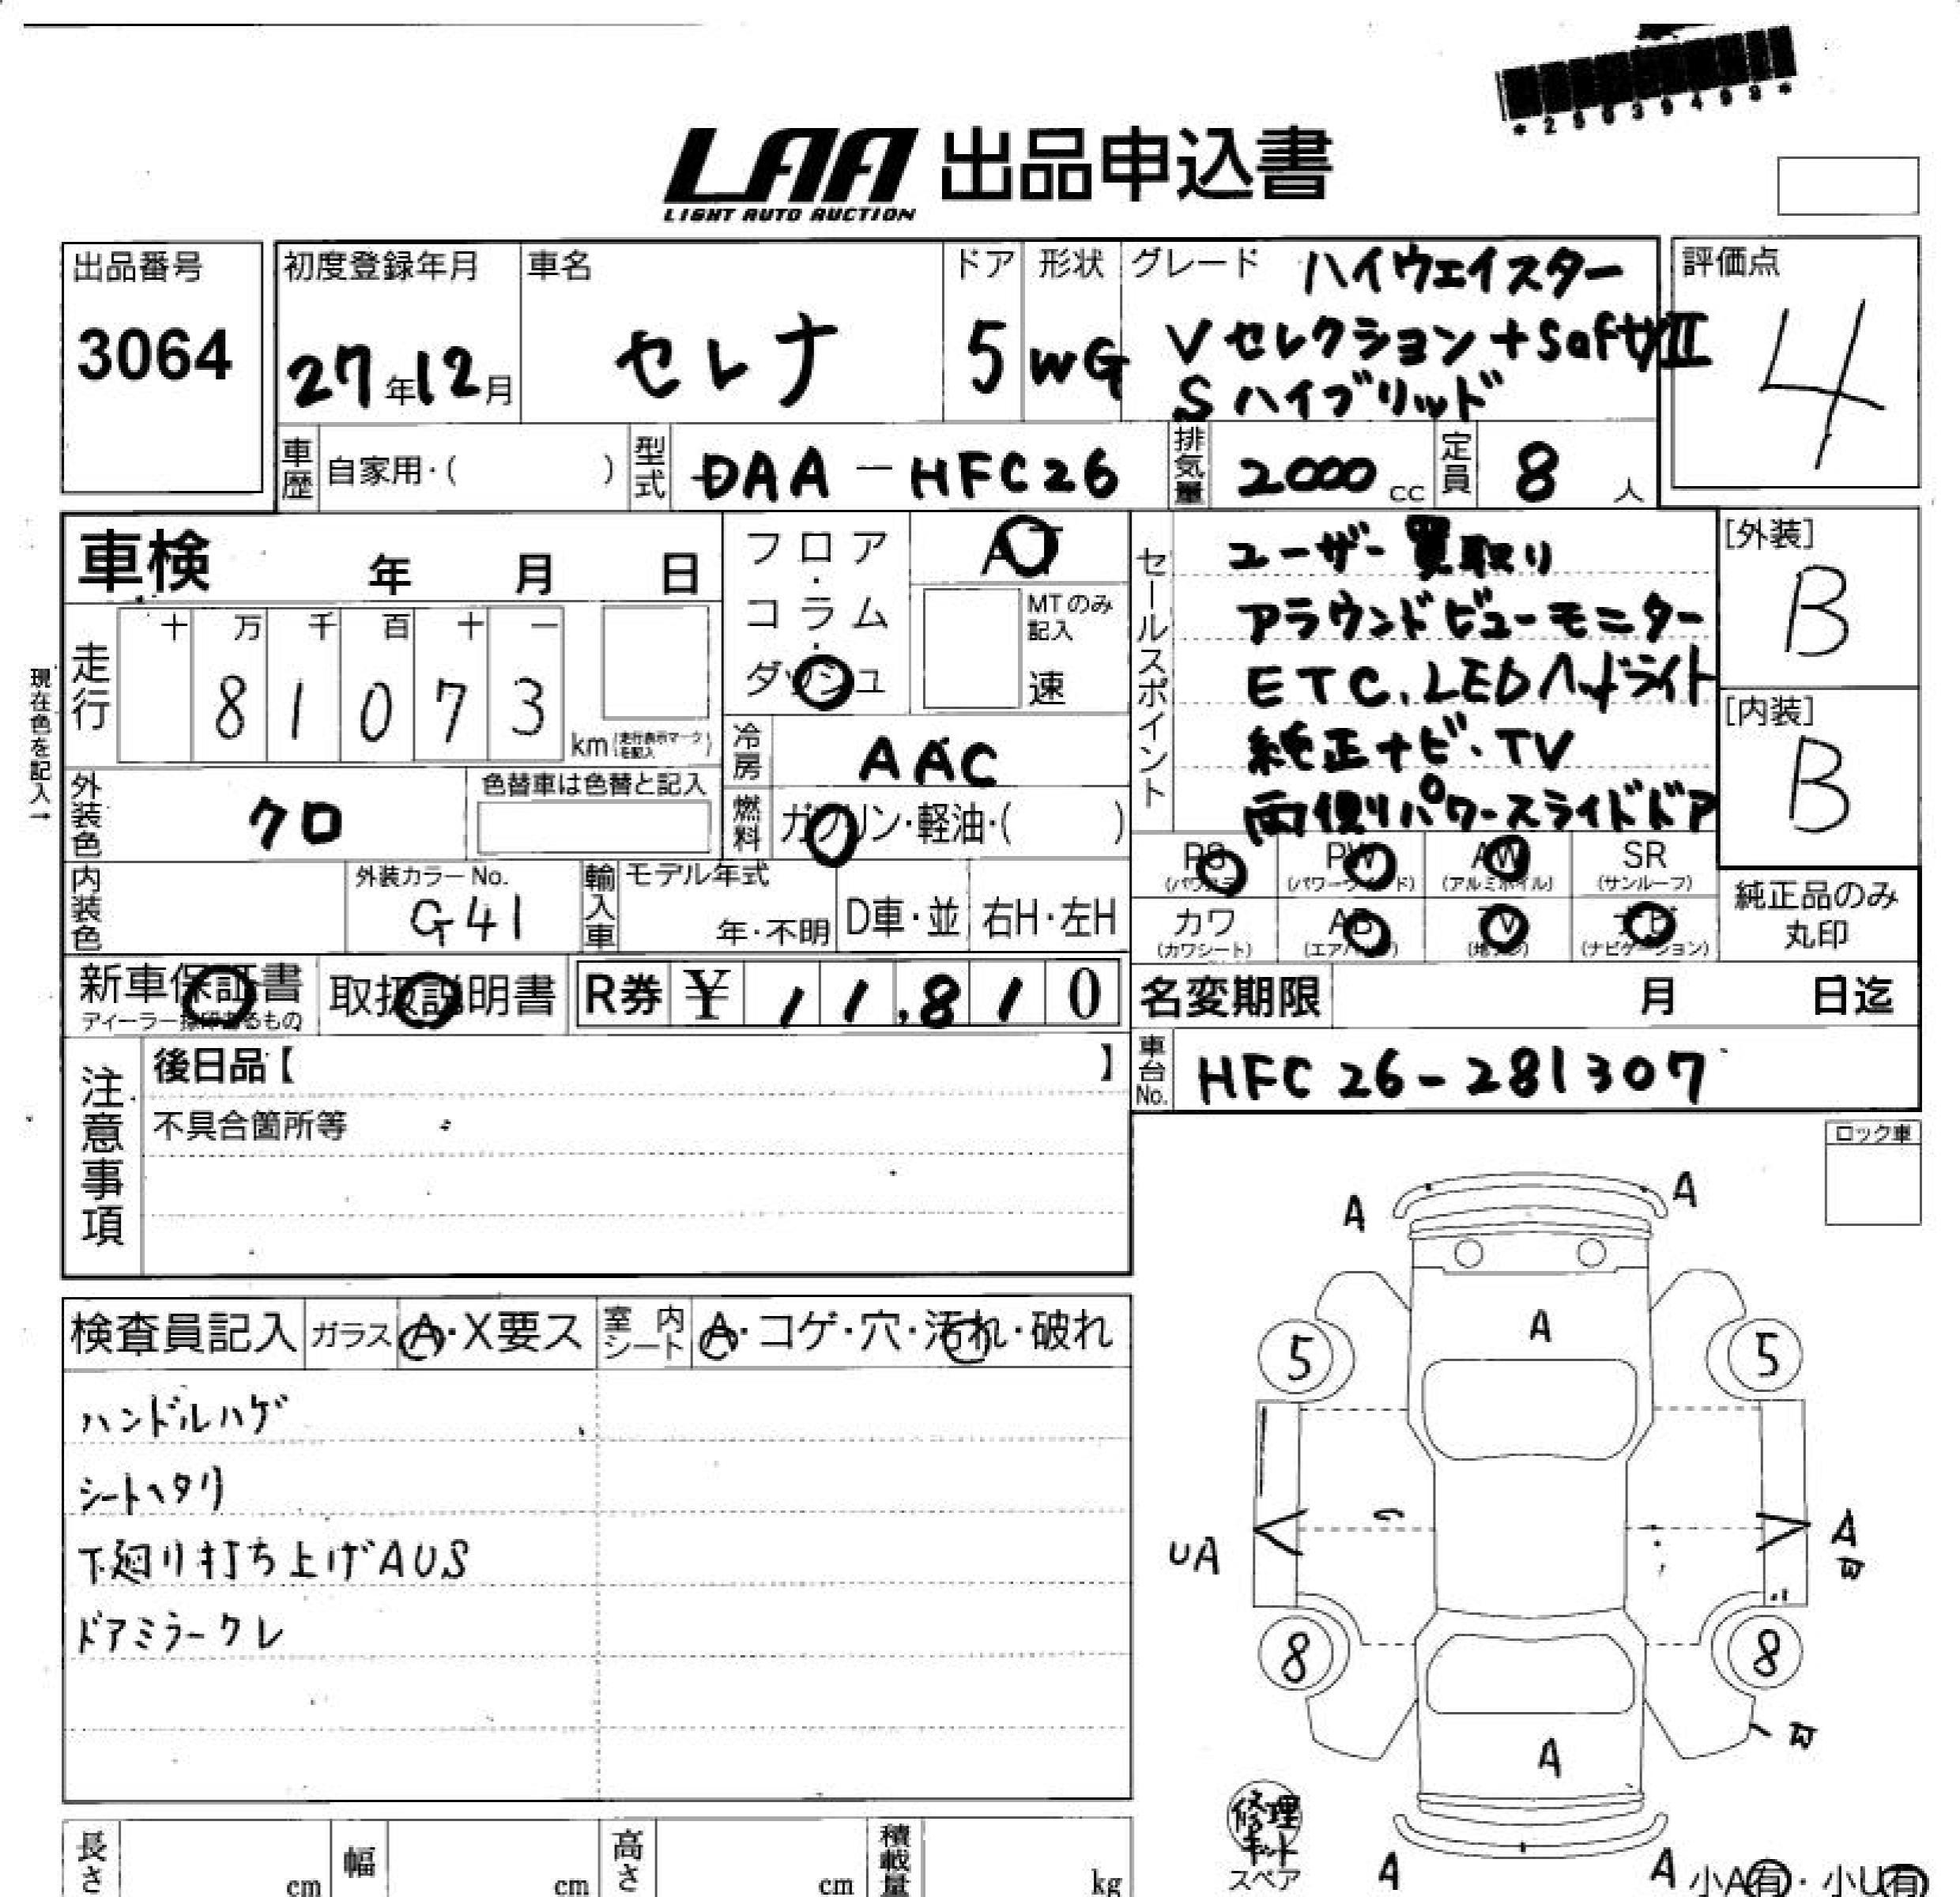 LAA 出品申込書
LIGHT AUTO AUCTION
出品番号
3064
初度登録年月
27年12月
車名
セレナ
ドア
5
形状
WG
グレード ハイウェイスター
Vセレクション+SaftyⅡ
Sハイブリッド
評価点
4
車歴 自家用・( )
型式 DAA-HFC26
排気量 2000 cc
定員 8 人
車検 年 月 日
フロア・コラム・ダッシュ
AT
MTのみ記入
速
セールスポイント
ユーザー買取り
アラウンドビューモニター
ETC、LEDヘッドライト
純正ナビ・TV
両側パワースライドドア
[外装]
B
[内装]
B
現在色を記入→
走行
十 万 千 百 十 一
8 1 0 7 3
km(走行表示マークを記入)
冷房 AAC
燃料 ガソリン・軽油・( )
外装色 クロ
色替車は色替と記入
内装色
外装カラーNo.
G41
輸入車
モデル年式
年・不明
D車・並
右H・左H
PS (パワステ)
PW (パワーウィンド)
AW (アルミホイル)
SR (サンルーフ)
カワ (カワシート)
AB (エアバッグ)
TV
ナビ (ナビゲーション)
純正品のみ丸印
新車保証書
取扱説明書
R券 ¥ 11,810
名変期限 月 日迄
車台No. HFC26-281307
注意事項
後日品【 】
不具合箇所等
ロック車
検査員記入
ガラス A・X要ス
室内シート A・コゲ・穴・汚れ・破れ
ハンドルハゲ
シートヘタリ
下廻り打ち上げAUS
ドアミラークレ
A A
A
5 5
UA A
8 8
A
修理キット
スペア
A A
小A有・小U有
長さ cm
幅 cm
高さ cm
積載量 kg